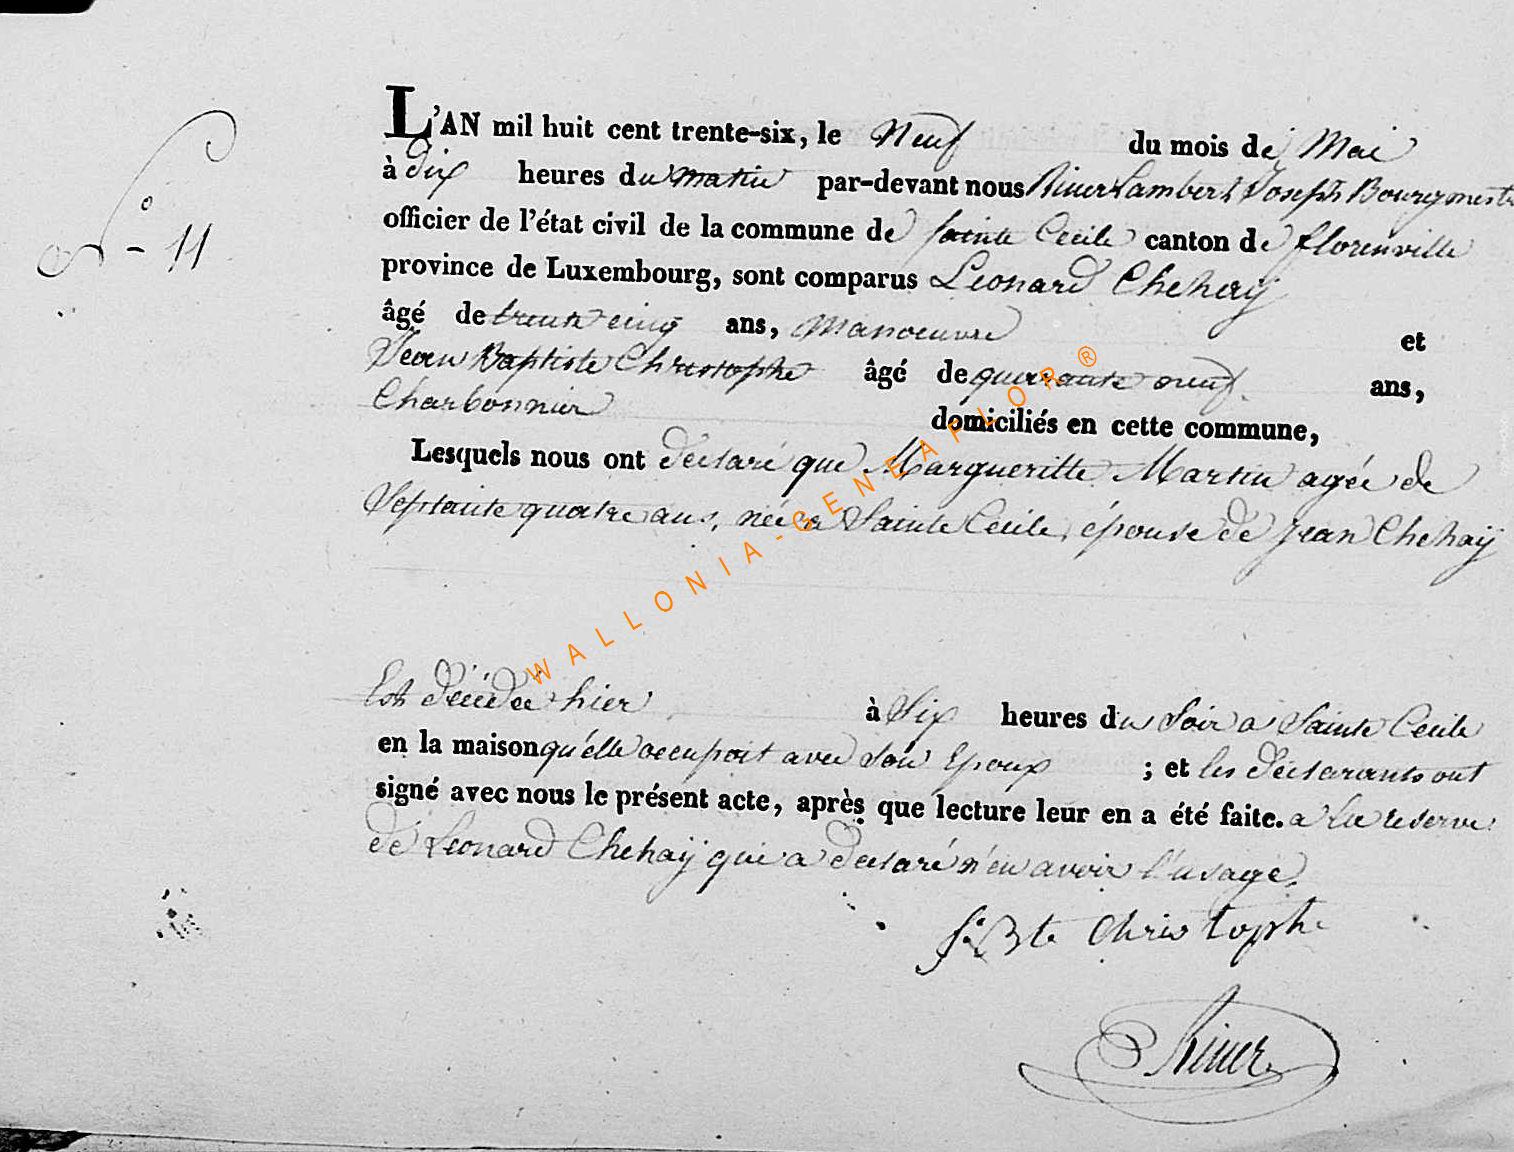 N° - 11
L'AN mil huit cent trente-six, le Neuf du mois de Mai
à dix heures du matin par-devant nous River Lambert Joseph Bourgmestre
officier de l'état civil de la commune de Sainte Cecile canton de florenville
province de Luxembourg, sont comparus Leonard Chehaÿ
âgé de trente cinq ans, Manoeuvre et
Jean Baptiste Christophe âgé de quarante neuf ans,
Charbonnier domiciliés en cette commune,
Lesquels nous ont déclaré que Margueritte Martin agée de
Septante quatre ans, née a Sainte Cecile, épouse de Jean Chehaÿ
Est décédée hier à Six heures du Soir a Sainte Cecile
en la maison qu'elle occupoit avec Son Epoux ; et les déclarants ont
signé avec nous le présent acte, après que lecture leur en a été faite. a la reserve
de Leonard Chehaÿ qui a declaré n'en avoir l'usage.
J. Bte Christophe
River
WALLONIA-GENEAFLOR®